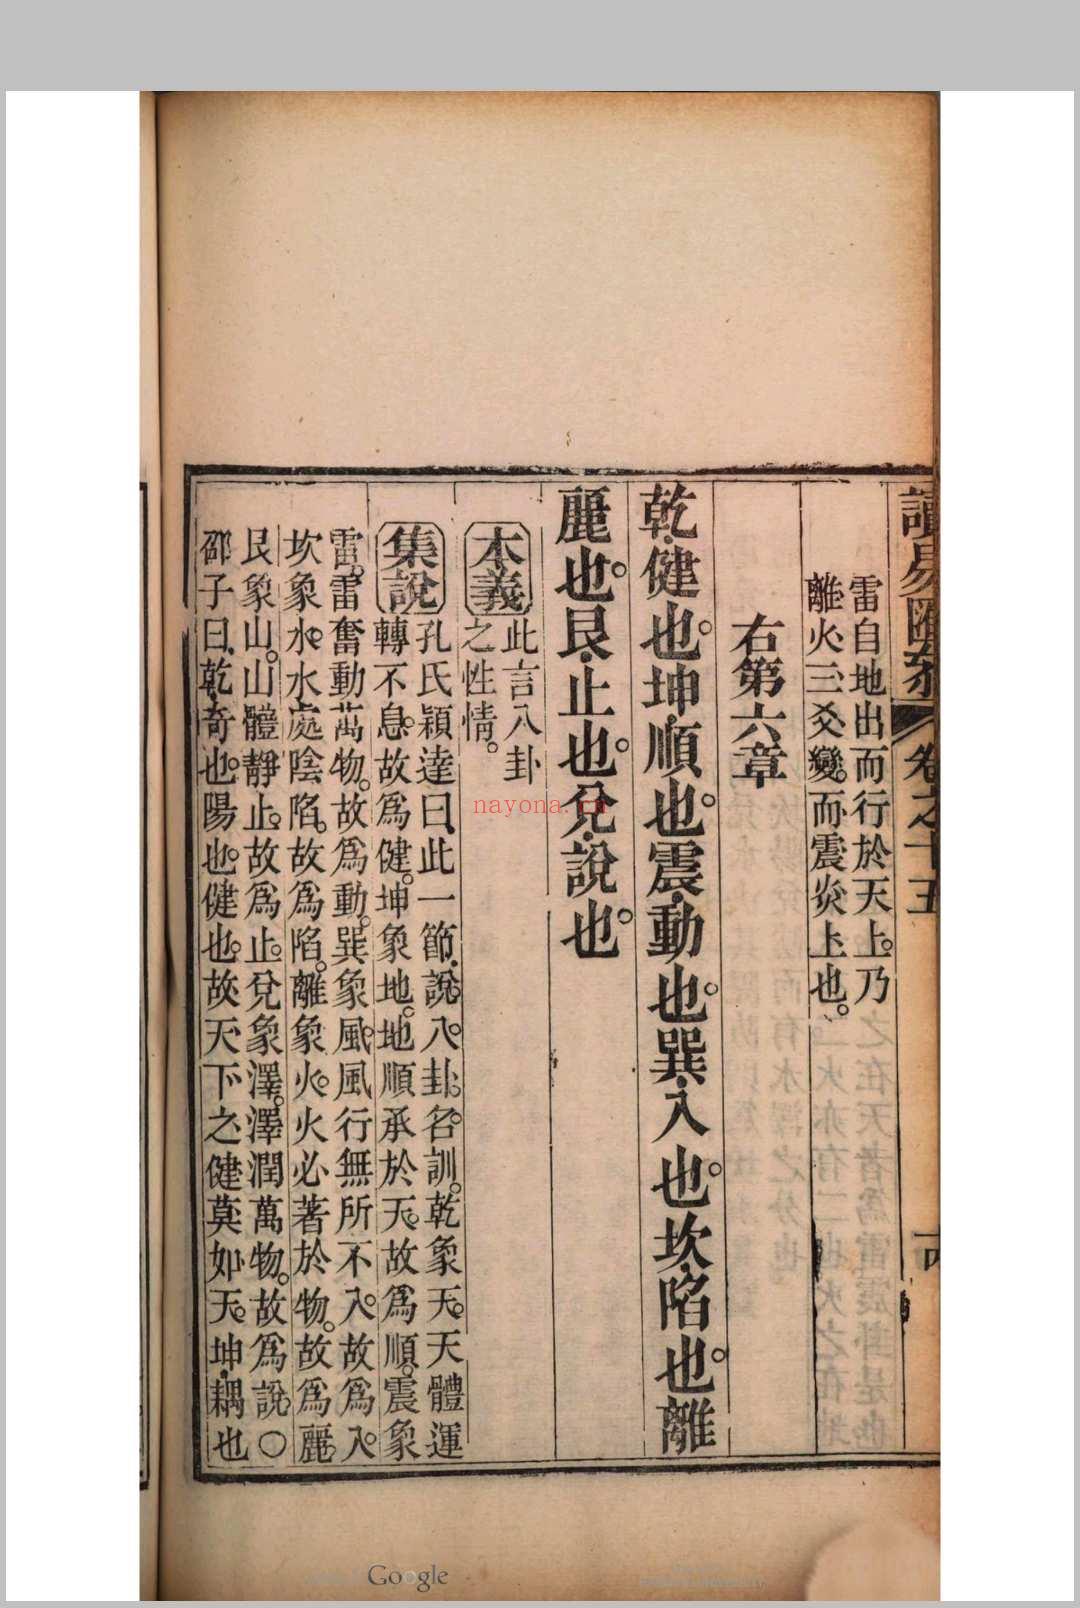 讀易匯參 卷之十五
雷自地出而行於天上。乃
離火三爻變。而震炎上也。
右第六章
乾健也。坤順也。震動也。巽入也。坎陷也。離
麗也。艮止也。兌說也。
本義
此言八卦
之性情。
集說
孔氏穎達曰、此一節、說八卦名訓。乾象天。天體運
轉不息。故爲健。坤象地。地順承於天。故爲順。震象
雷。雷奮動萬物。故爲動。巽象風。風行無所不入。故爲入。
坎象水。水處陰陷。故爲陷。離象火。火必著於物。故爲麗。
艮象山。山體靜止。故爲止。兌象澤。澤潤萬物。故爲說。〇
邵子曰、乾、奇也。陽也。健也。故天下之健莫如天。坤、耦也
nayona.cn
Google